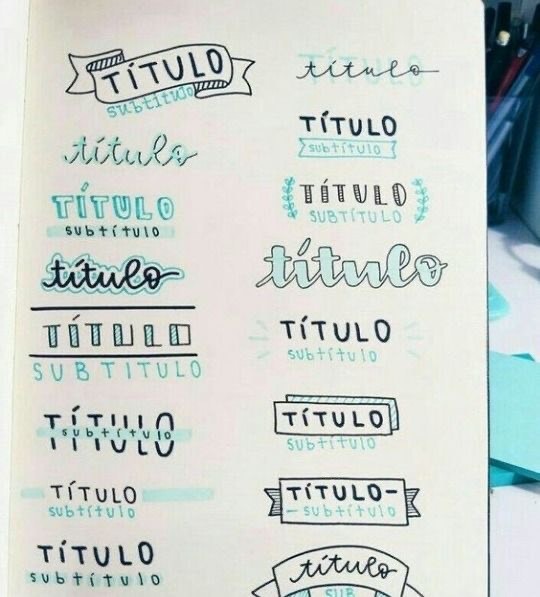 TÍTULO
subtítulo
título
TÍTULO
subtítulo
título
TÍTULO
SUBTITULO
TÍTULO
subtítulo
TÍTULO
subtítulo
TÍTULO
subtítulo
TÍTULO
título
TÍTULO
subtítulo
TÍTULO
SUBTÍTULO
título
TÍTULO
subtítulo
TÍTULO
subtítulo
TÍTULO-
-subtítulo
título
SUB